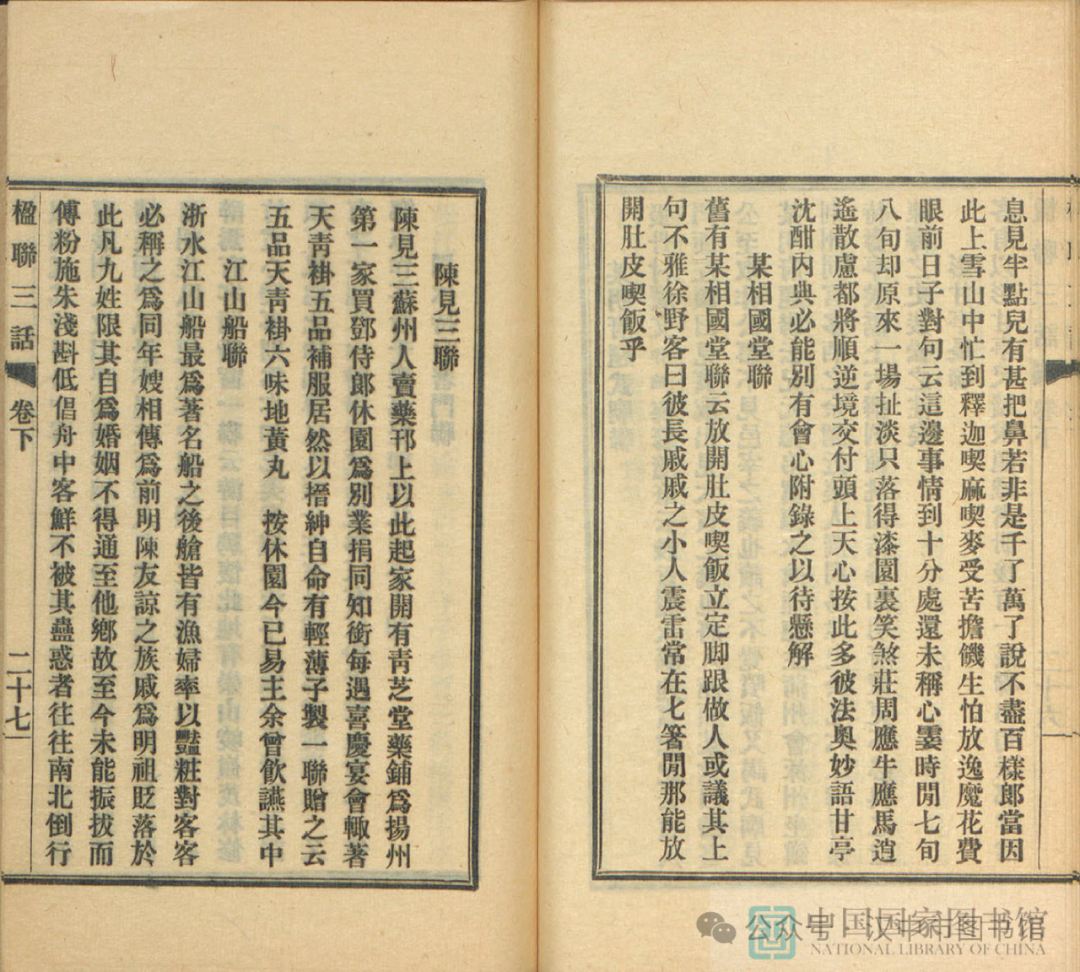 息見半點兒有甚把鼻若非是千了萬了說不盡百樣郎當因
此上雪山中忙到釋迦喫麻喫麥受苦擔饑生怕放逸魔花費
眼前日子對句云這邊事情到十分處還未稱心霎時閒七旬
八旬却原來一場扯淡只落得漆園裏笑煞莊周應牛應馬逍
遙散慮都將順逆境交付頭上天心按此多彼法奧妙語甘亭
沈酣內典必能別有會心附錄之以待懸解
某相國堂聯
舊有某相國堂聯云放開肚皮喫飯立定脚跟做人或議其上
句不雅徐野客曰彼長戚戚之小人震雷常在七箸閒那能放
開肚皮喫飯乎
陳見三聯
陳見三蘇州人賣藥邗上以此起家開有靑芝堂藥鋪爲揚州
第一家買鄧侍郎休園爲別業捐同知銜每遇喜慶宴會輙著
天靑褂五品補服居然以搢紳自命有輕薄子製一聯贈之云
五品天靑褂六味地黃丸 按休園今已易主余曾飮讌其中
江山船聯
浙水江山船最爲著名船之後艙皆有漁婦率以豔粧對客客
必稱之爲同年嫂相傳爲前明陳友諒之族戚爲明祖貶落於
此凡九姓限其自爲婚姻不得通至他鄕故至今未能振拔而
傅粉施朱淺斟低倡舟中客鮮不被其蠱惑者往往南北倒行
楹聯三話 卷下 二十七
公众号·汉中市图书馆
中国国家图书馆
NATIONAL LIBRARY OF CHINA